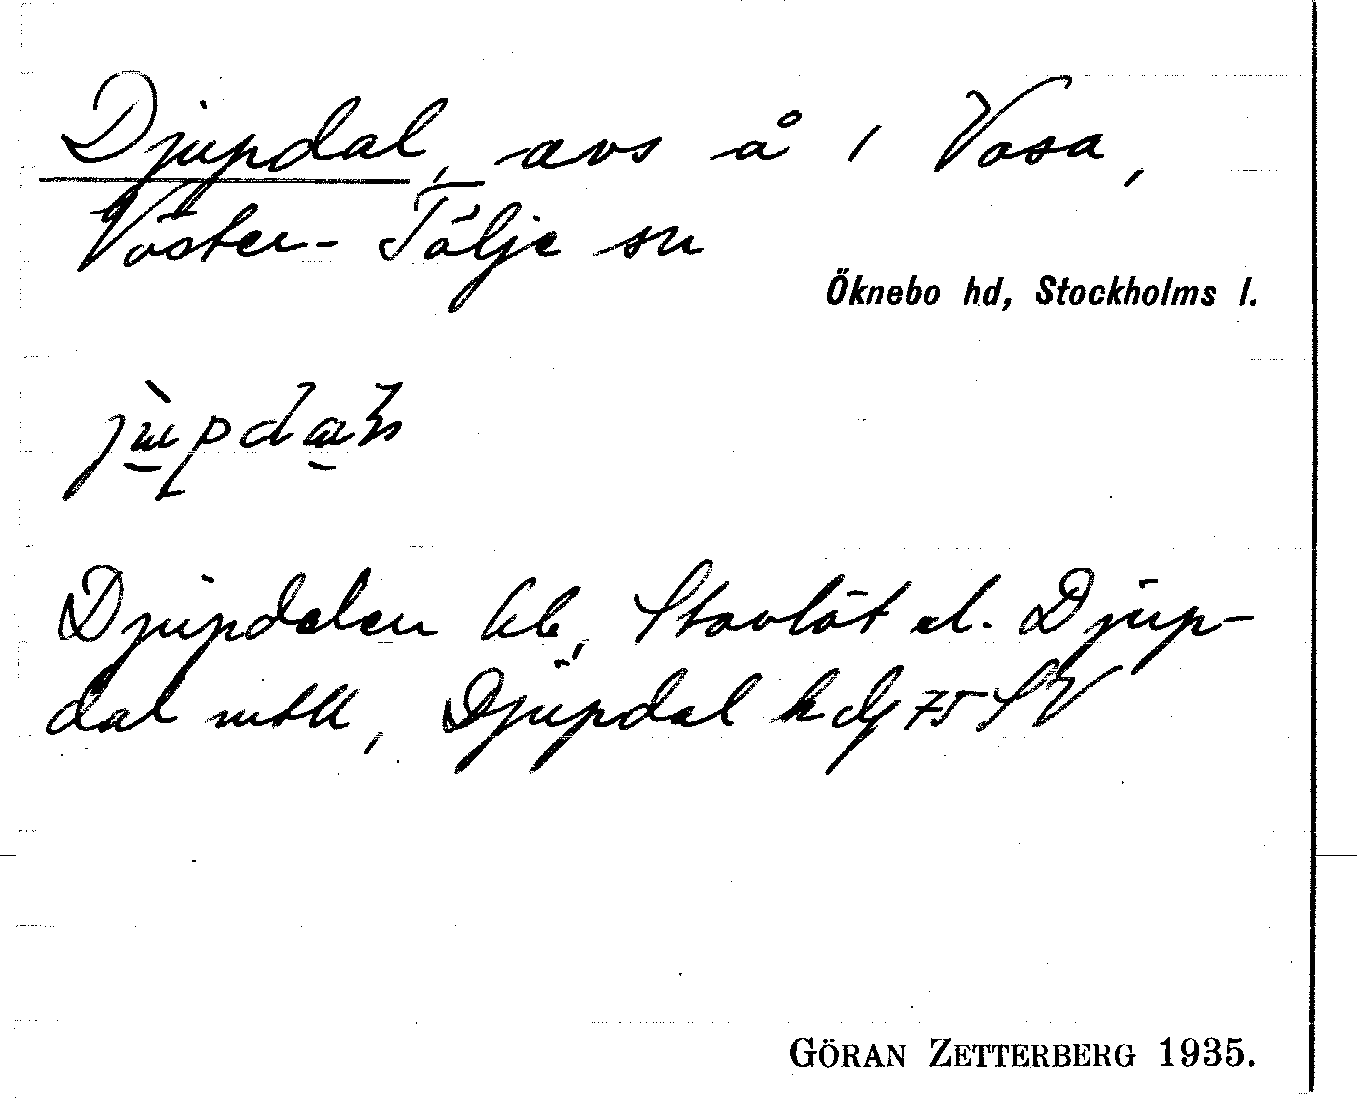 Djupdal, avs å 1 Vasa,
Väster-Tälje sn
Öknebo hd, Stockholms l.
Djupdalen hb, Stavlöt el. Djup-
dal mtk, Djupdal k dj 75 SV
GÖRAN ZETTERBERG 1935.